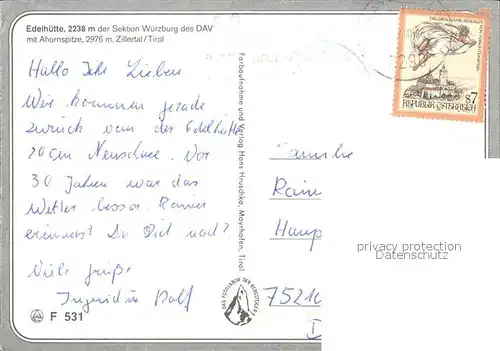 Edelhütte, 2238 m der Sektion Würzburg des DAV
mit Ahornspitze, 2976 m. Zillertal/Tirol
Hallo Ihr Lieben
Wir kommen gerade
zurück von der Edelhütte
20cm Neuschnee. Vor
30 Jahren war das
Wetter besser. Rainer
erinnerst Du Dich noch?
Viele Grüße
Ingrid u. Rolf
F 531
Farbaufnahme und Verlag Hans Hruschka, Mayrhofen, Tirol
DAS FOTOLABOR DER BERGSTEIGER
REPUBLIK ÖSTERREICH
S7
Familie
Rain
Haup
7521
D
privacy protection
Datenschutz